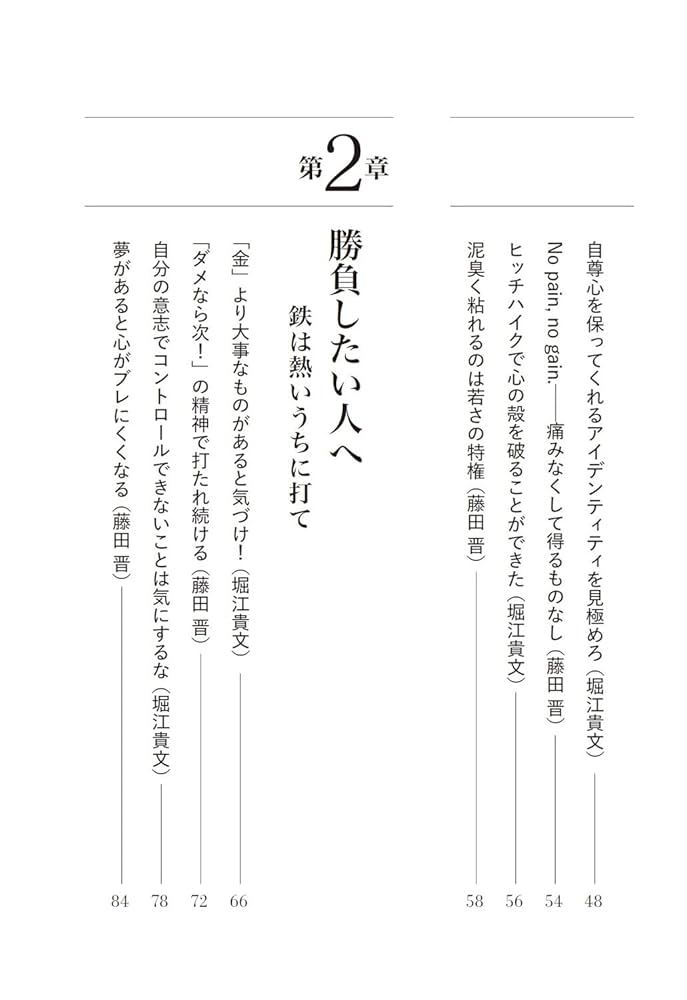 自尊心を保ってくれるアイデンティティを見極めろ(堀江貴文) 48
No pain, no gain.——痛みなくして得るものなし(藤田 晋) 54
ヒッチハイクで心の殻を破ることができた(堀江貴文) 56
泥臭く粘れるのは若さの特権(藤田 晋) 58
第2章
勝負したい人へ
鉄は熱いうちに打て
「金」より大事なものがあると気づけ!(堀江貴文) 66
「ダメなら次!」の精神で打たれ続ける(藤田 晋) 72
自分の意志でコントロールできないことは気にするな(堀江貴文) 78
夢があると心がブレにくくなる(藤田 晋) 84